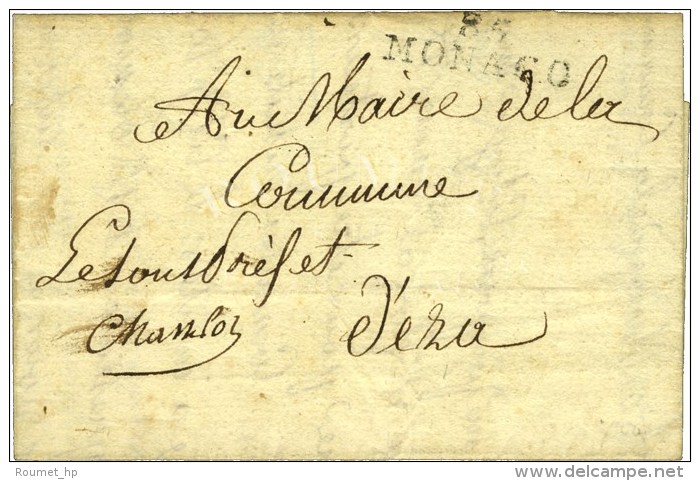 85
MONACO
Au Maire de la
Commune
Le sous Préfet
d'éza
Roumet_hp
delcampe.net